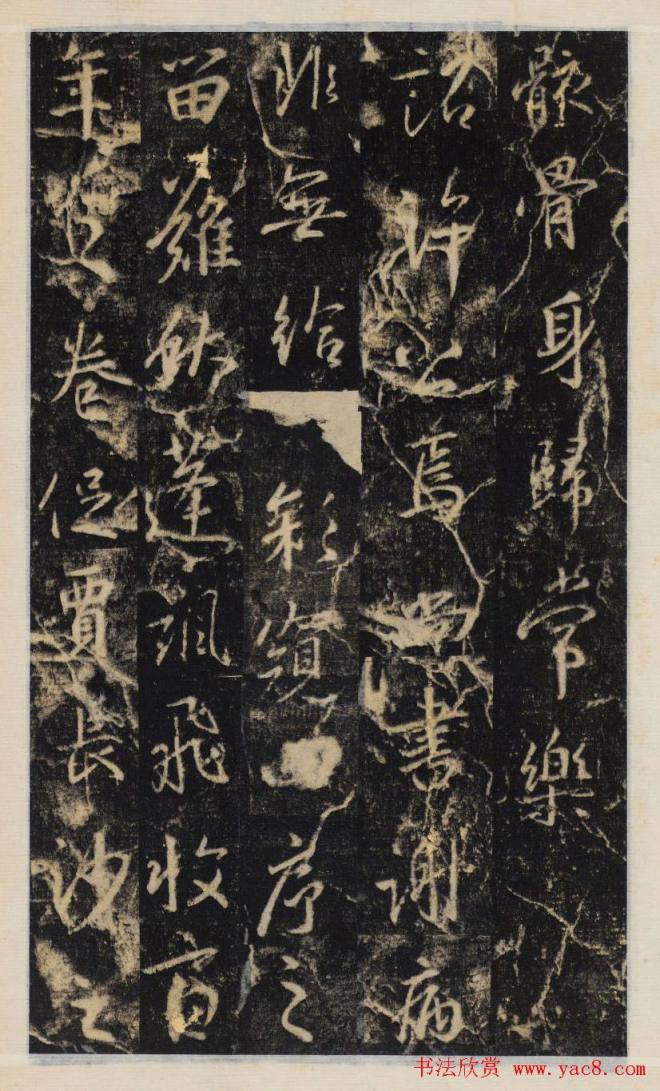 骸骨身歸常樂
詔許之焉尚書謝病
非無給彩寵序之
留難飲蓬颯飛收宣
年卷促賈長沙之
书法欣赏 www.yac8.com